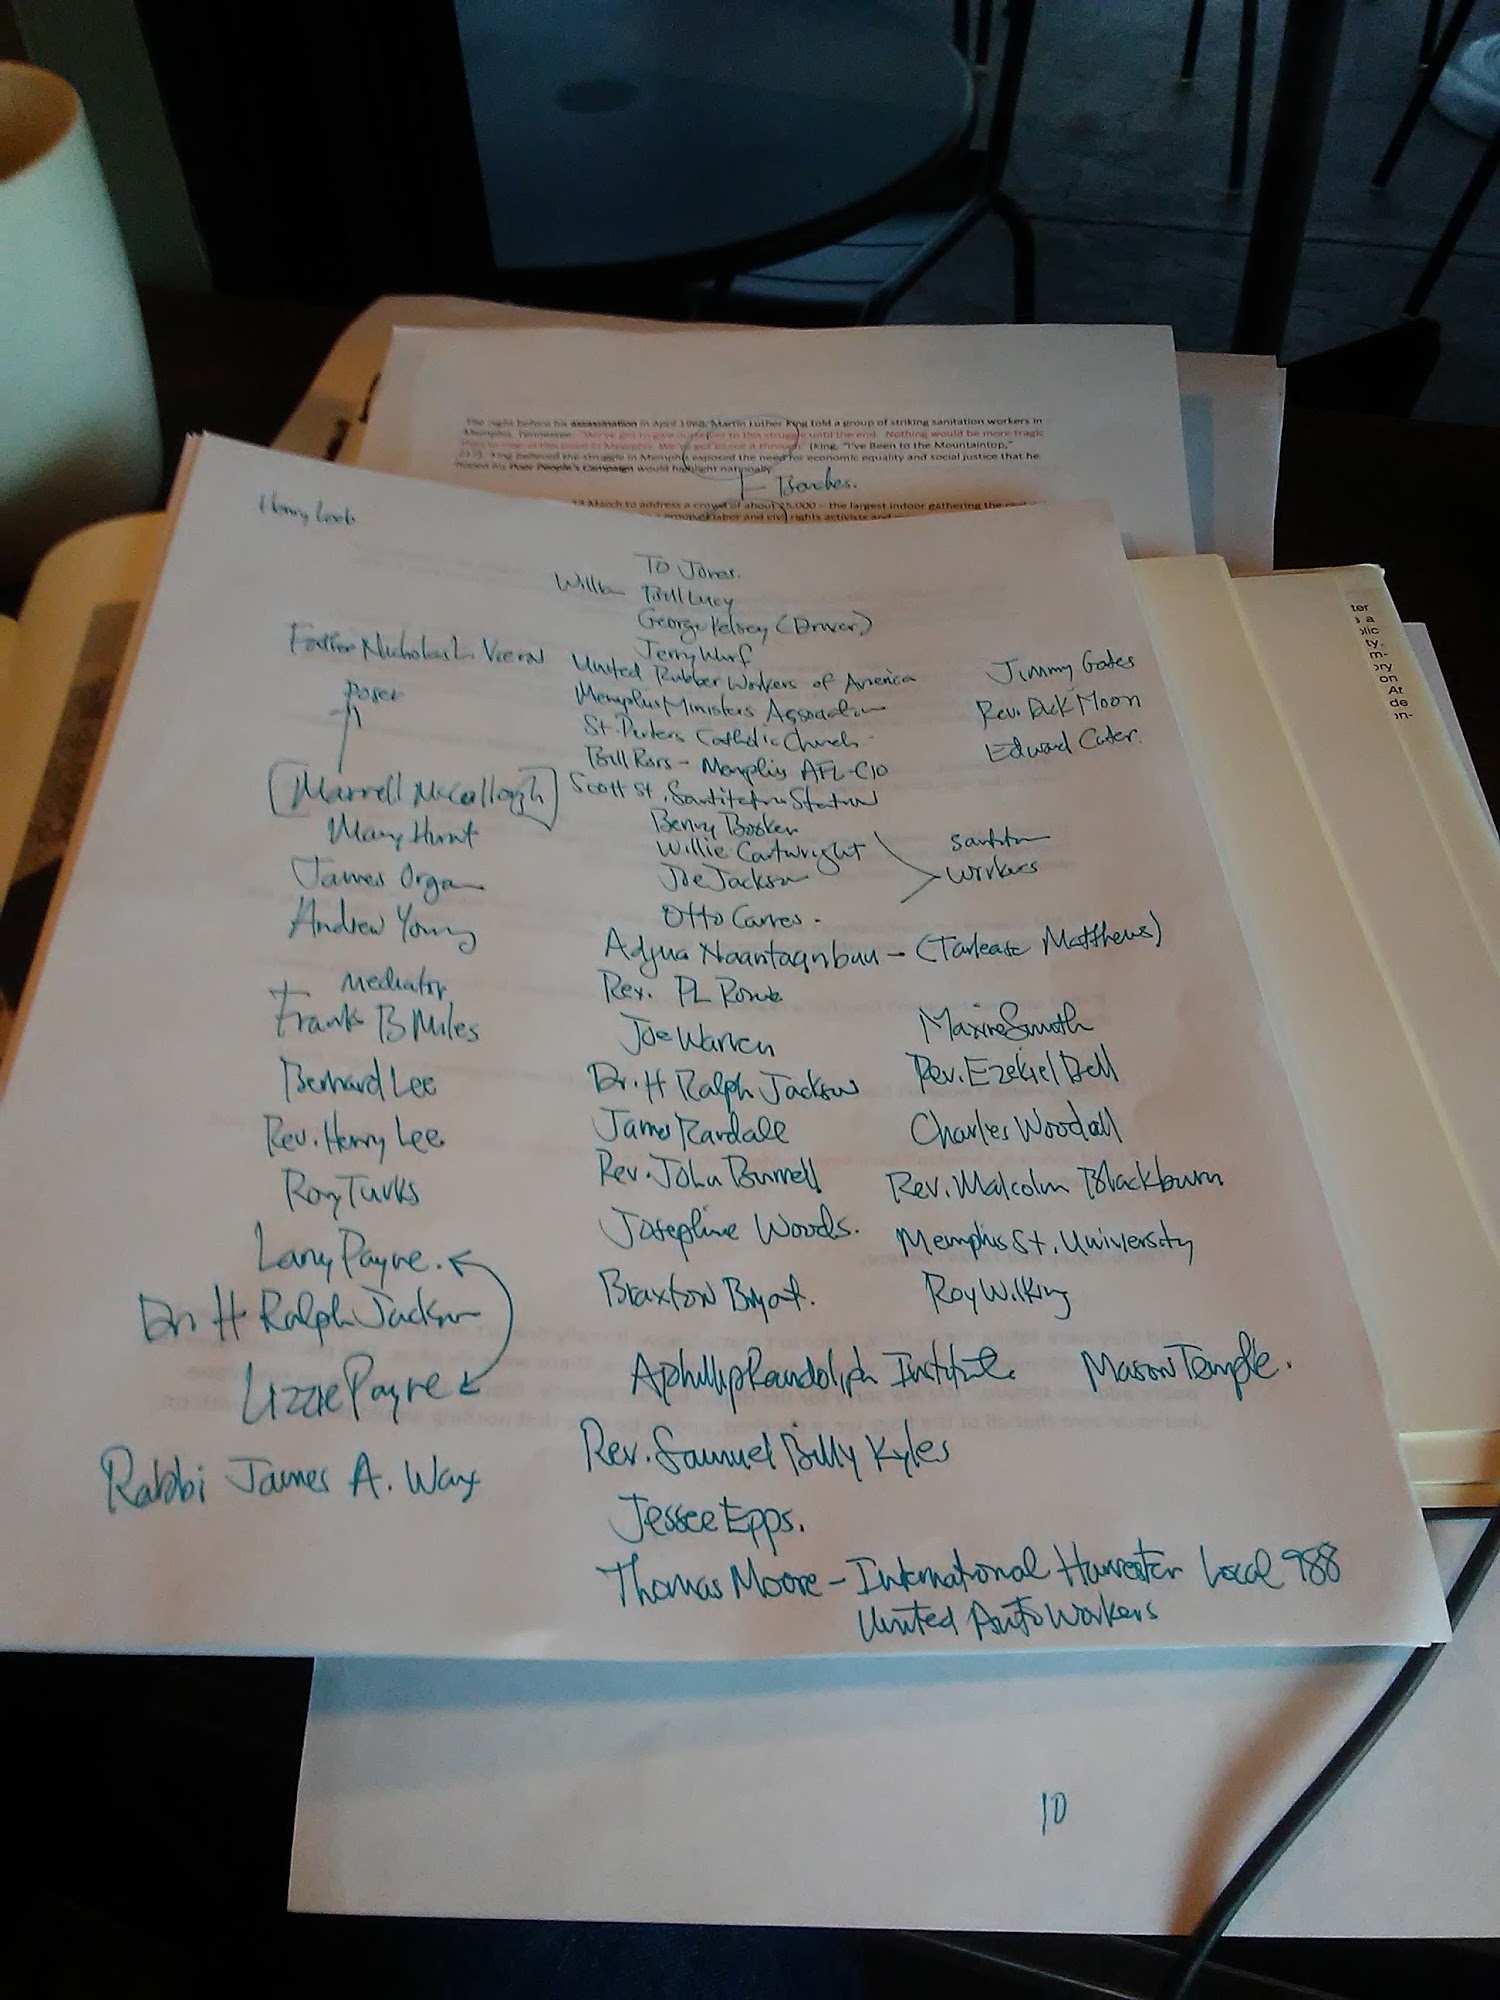 The night before his assassination in April 1968, Martin Luther King told a group of striking sanitation workers in
Memphis, Tennessee: "We've got to give ourselves to this struggle until the end. Nothing would be more tragic
than to stop at this point in Memphis. We've got to see it through" (King, "I've Been to the Mountaintop,"
217). King believed the struggle in Memphis exposed the need for economic equality and social justice that he
hoped his Poor People's Campaign would highlight nationally.
March to address a crowd of about 25,000 – the largest indoor gathering the
group of labor and civil rights activists and
Henry Loeb
TO Jones.
Bill Lucy
George Kelsey (Driver)
Jerry Wurf
United Rubber Workers of America
Memphis Ministers Association
St. Peters Catholic Church
Bill Ross - Memphis AFL-CIO
Scott St. Station
Benny Booker
Willie Cartwright
Joe Jackson
Otto
Adjua Naantaanbuu - (Tarlease Matthews)
Rev. PL
Joe Warren
Dr. H Ralph Jackson
James Randall
Rev. John Burrell
Josephine Woods.
Braxton Bryant.
A Phillip Randolph Institute
Rev. Samuel Billy Kyles
Jessee Epps.
Thomas Moore - International Harvester Local 988
United Auto Workers
Father Nicholas L. Vieron
poser
Marrell McCollough
Mary Hunt
James Organ
Andrew Young
mediator
Frank B Miles
Bernard Lee
Rev. Henry Lee
Roy Turks
Larry Payne.
Dr. H Ralph Jackson
Lizzie Payne
Rabbi James A. Wax
Jimmy Gates
Rev. Dick Moon
Edward Carter.
workers
Maxine Smith
Rev. Ezekiel Bell
Charles Woodall
Rev. Malcolm Blackburn
Memphis St. University
Roy Wilking
Mason Temple.
10
ter
s a
olic
ty.
m-
ory
on
At
de
on-